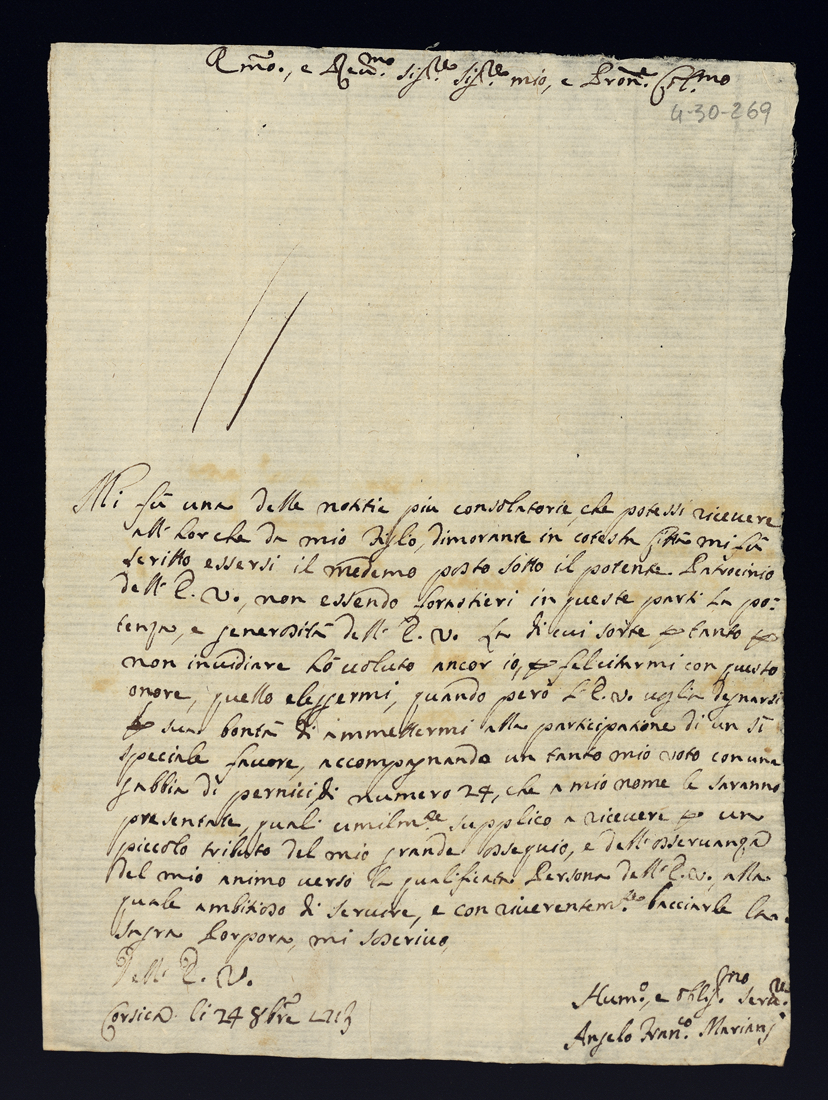 Emo., e Reu.mo Sig.re Sig.re mio, e Pron.e Col.mo
4-30-269
Mi fù una delle notitie più consolatorie, che potessi riceuere
all'hor che da mio figlo, dimorante in cotesta Città mi fù
scritto essersi il medemo posto sotto il potente Patrocinio
dell'E. V., non essendo forastieri in queste parti la po-
tenza, e generosità dell'E. V. La di cui sorte p tanto p
non inuidiare hò uoluto ancor io, p felicitarmi con questo
onore, quello eleggermi, quando però l'E. V. uoglia degnarsi
p sua bontà di ammettermi alla participatione di un sì
speciale fauore, accompagnando un tanto mio uoto con una
gabbia di pernici di numero 24, che a mio nome le saranno
presentate, quali umilm.te supplico a riceuere p un
piccolo tributo del mio grande ossequio, e dell'osseruanza
del mio animo uerso la qualificata Persona dell'E. V., alla
quale ambitioso di seruire, e con riuerentem.te bacciarle la
sagra Porpora, mi soscriuo,
Dell'E. V.
Corsica li 24 8bre 1713
Humo., e obblig.mo Seru.re
Angelo Fran.co Mariani